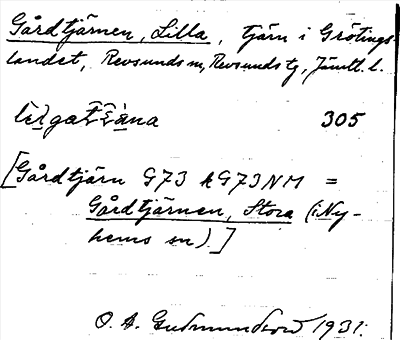 Gårdtjärnen, Lilla, tjärn i Grötings-
landet, Revsunds sn, Revsunds tg, Jämtl. l.
305
[Gårdtjärn G73 AG73NM =
Gårdtjärnen, Stora (i Ny-
hems sn).]
O. A. Gudmundson 1931.